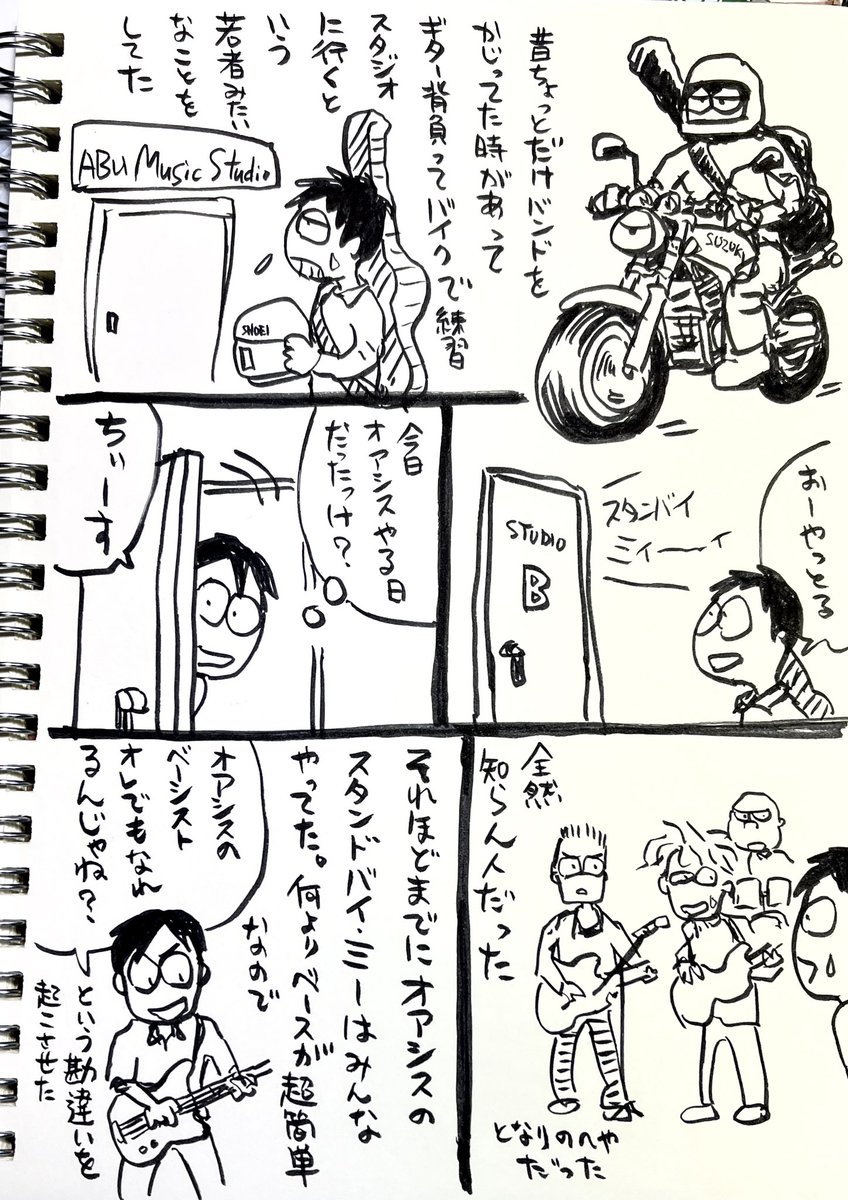 昔ちょっとだけバンドを
かじってた時があって
ギター背負ってバイクで練習
スタジオ
に行くと
いう
若者みたい
なことを
してた
SUZUKI
ABU Music Studio
SHOEI
おーやっとる
スタンバイ
ミィーーィ
STUDIO
B
今日
オアシスやる日
だったっけ？
ちぃーす
全然
知らん人だった
となりのへや
だった
それほどまでにオアシスの
スタンドバイ・ミーはみんな
やってた。何よりベースが超簡単
なので
オアシスの
ベーシスト
オレでもなれ
るんじゃね？
という勘違いを
起こさせた